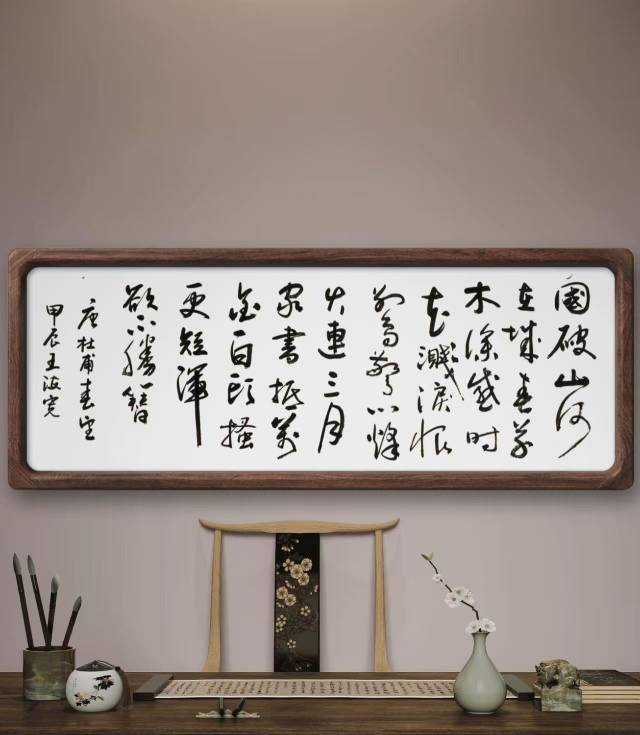 國破山河
在城春草
木深感时
花濺淚恨
别鳥驚心烽
火連三月
家書抵萬
金白頭搔
更短渾
欲不勝簪
唐杜甫春望
甲辰王波宽